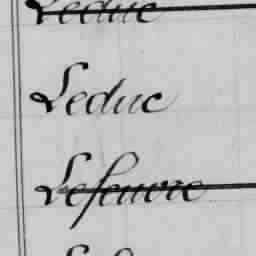 Leduc
Leduc
Lefeuvre